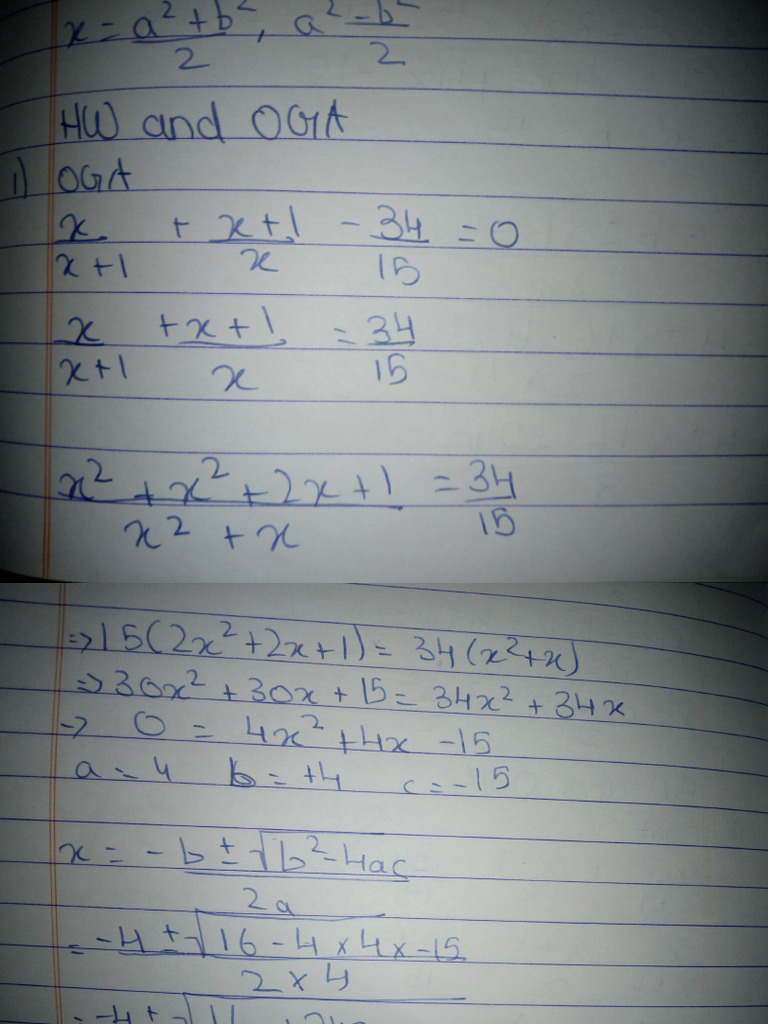 x = a² + b² / 2 , a² - b² / 2
HW and OGA
1) OGA
x / x + 1 + x + 1 / x - 34 / 15 = 0
x / x + 1 + x + 1 / x = 34 / 15
x² + x² + 2x + 1 / x² + x = 34 / 15
⇒ 15(2x² + 2x + 1) = 34(x² + x)
⇒ 30x² + 30x + 15 = 34x² + 34x
→ 0 = 4x² + 4x - 15
a = 4 b = +4 c = -15
x = -b ± √b² - 4ac / 2a
= -4 ± √16 - 4 × 4 × -15 / 2 × 4
= -4 ± √